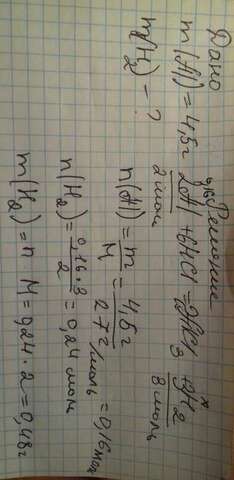 Дано
m(Al)=4,5г
m(H2)-?
Решение
0,16 x
2Al+6HCl=2AlCl3+3H2
2 моль 3 моль
n(Al)=m/M=4,5г/27г/моль=0,16моль
n(H2)=0,16*3/2=0,24моль
m(H2)=n M=0,24·2=0,48г